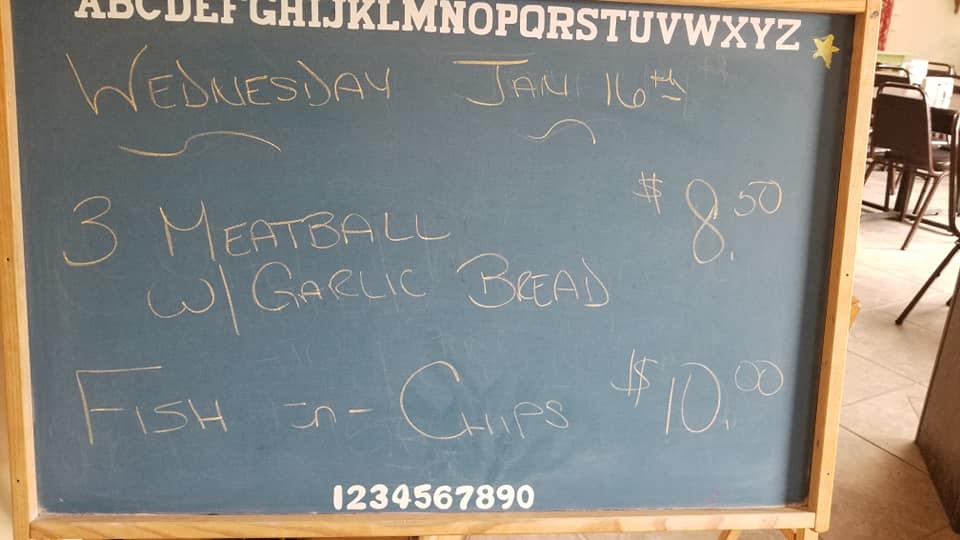 ABCDEFGHIJKLMNOPQRSTUVWXYZ
WEDNESDAY JAN 16th
3 MEATBALL $8.50
W/ GARLIC BREAD
FISH -n- CHIPS $10.00
1234567890